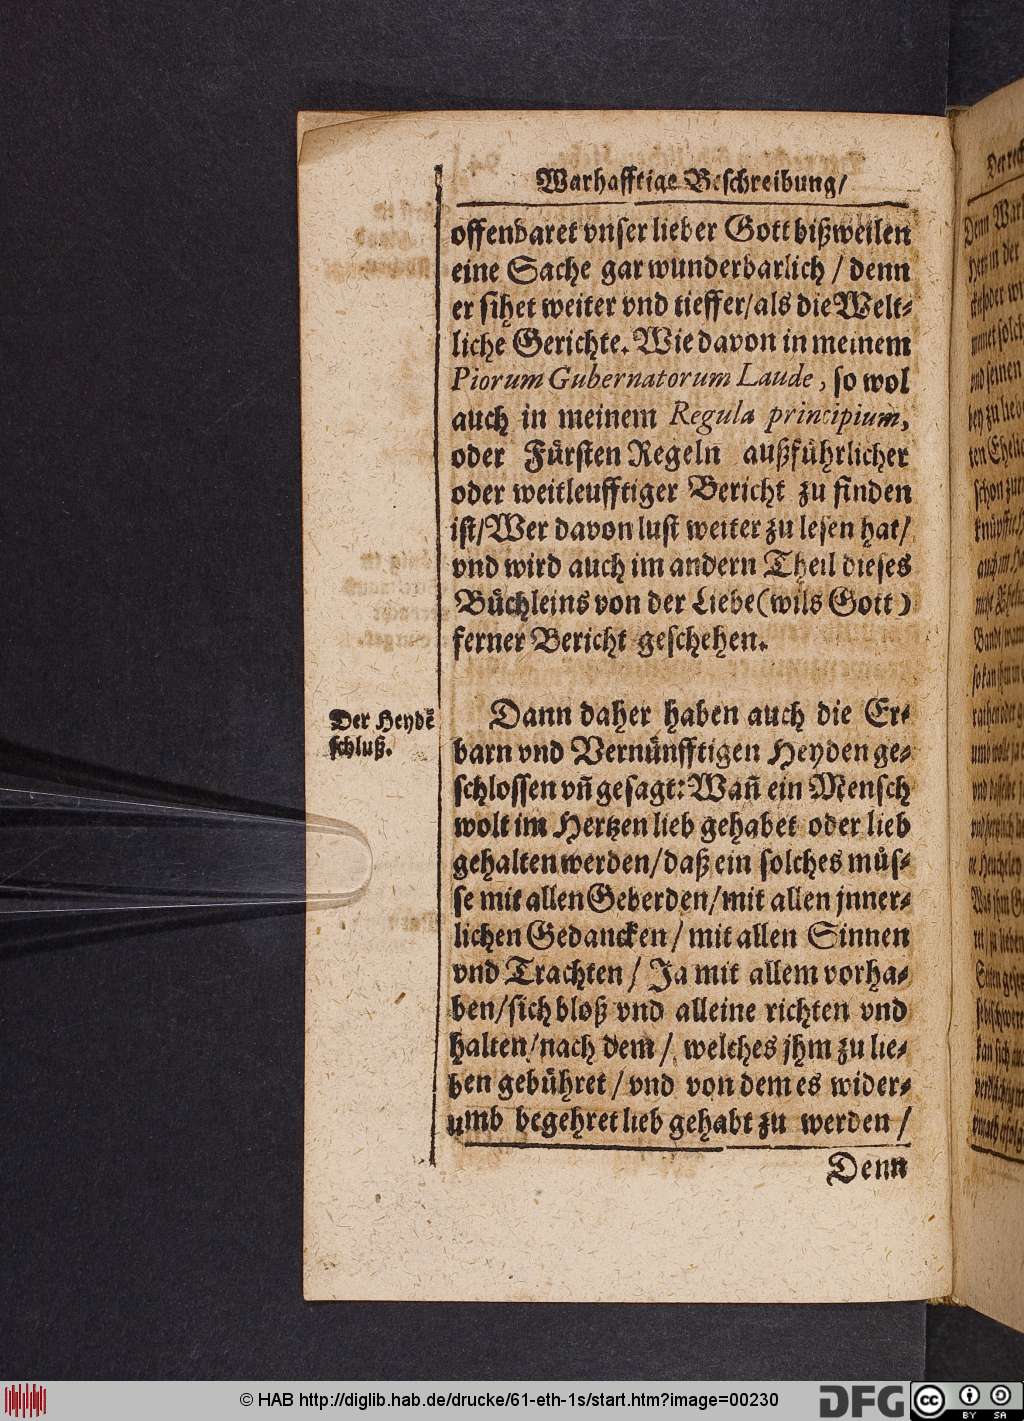 Warhafftige Beschreibung/
offenbaret vnser lieber Gott bißweilen
eine Sache gar wunderbarlich / denn
er sihet weiter vnd tieffer/als die Welt-
liche Gerichte. Wie davon in meinem
Piorum Gubernatorum Laude, so wol
auch in meinem Regula principium,
oder Fürsten Regeln außführlicher
oder weitleufftiger Bericht zu finden
ist/Wer davon lust weiter zu lesen hat/
vnd wird auch im andern Theil dieses
Büchleins von der Liebe (wils Gott)
ferner Bericht geschehen.
Der Heydẽ
schluß.
Dann daher haben auch die Er-
barn vnd Vernünfftigen Heyden ge-
schlossen vñ gesagt: Wañ ein Mensch
wolt im Hertzen lieb gehabet oder lieb
gehalten werden/daß ein solches müs-
se mit allen Geberden/mit allen jnner-
lichen Gedancken / mit allen Sinnen
vnd Trachten / Ja mit allem vorha-
ben/sich bloß vnd alleine richten vnd
halten/nach dem / welches jhm zu lie-
ben gebühret / vnd von dem es wider-
umb begehret lieb gehabt zu werden /
Denn
© HAB http://diglib.hab.de/drucke/61-eth-1s/start.htm?image=00230
DFG
cc
BY SA